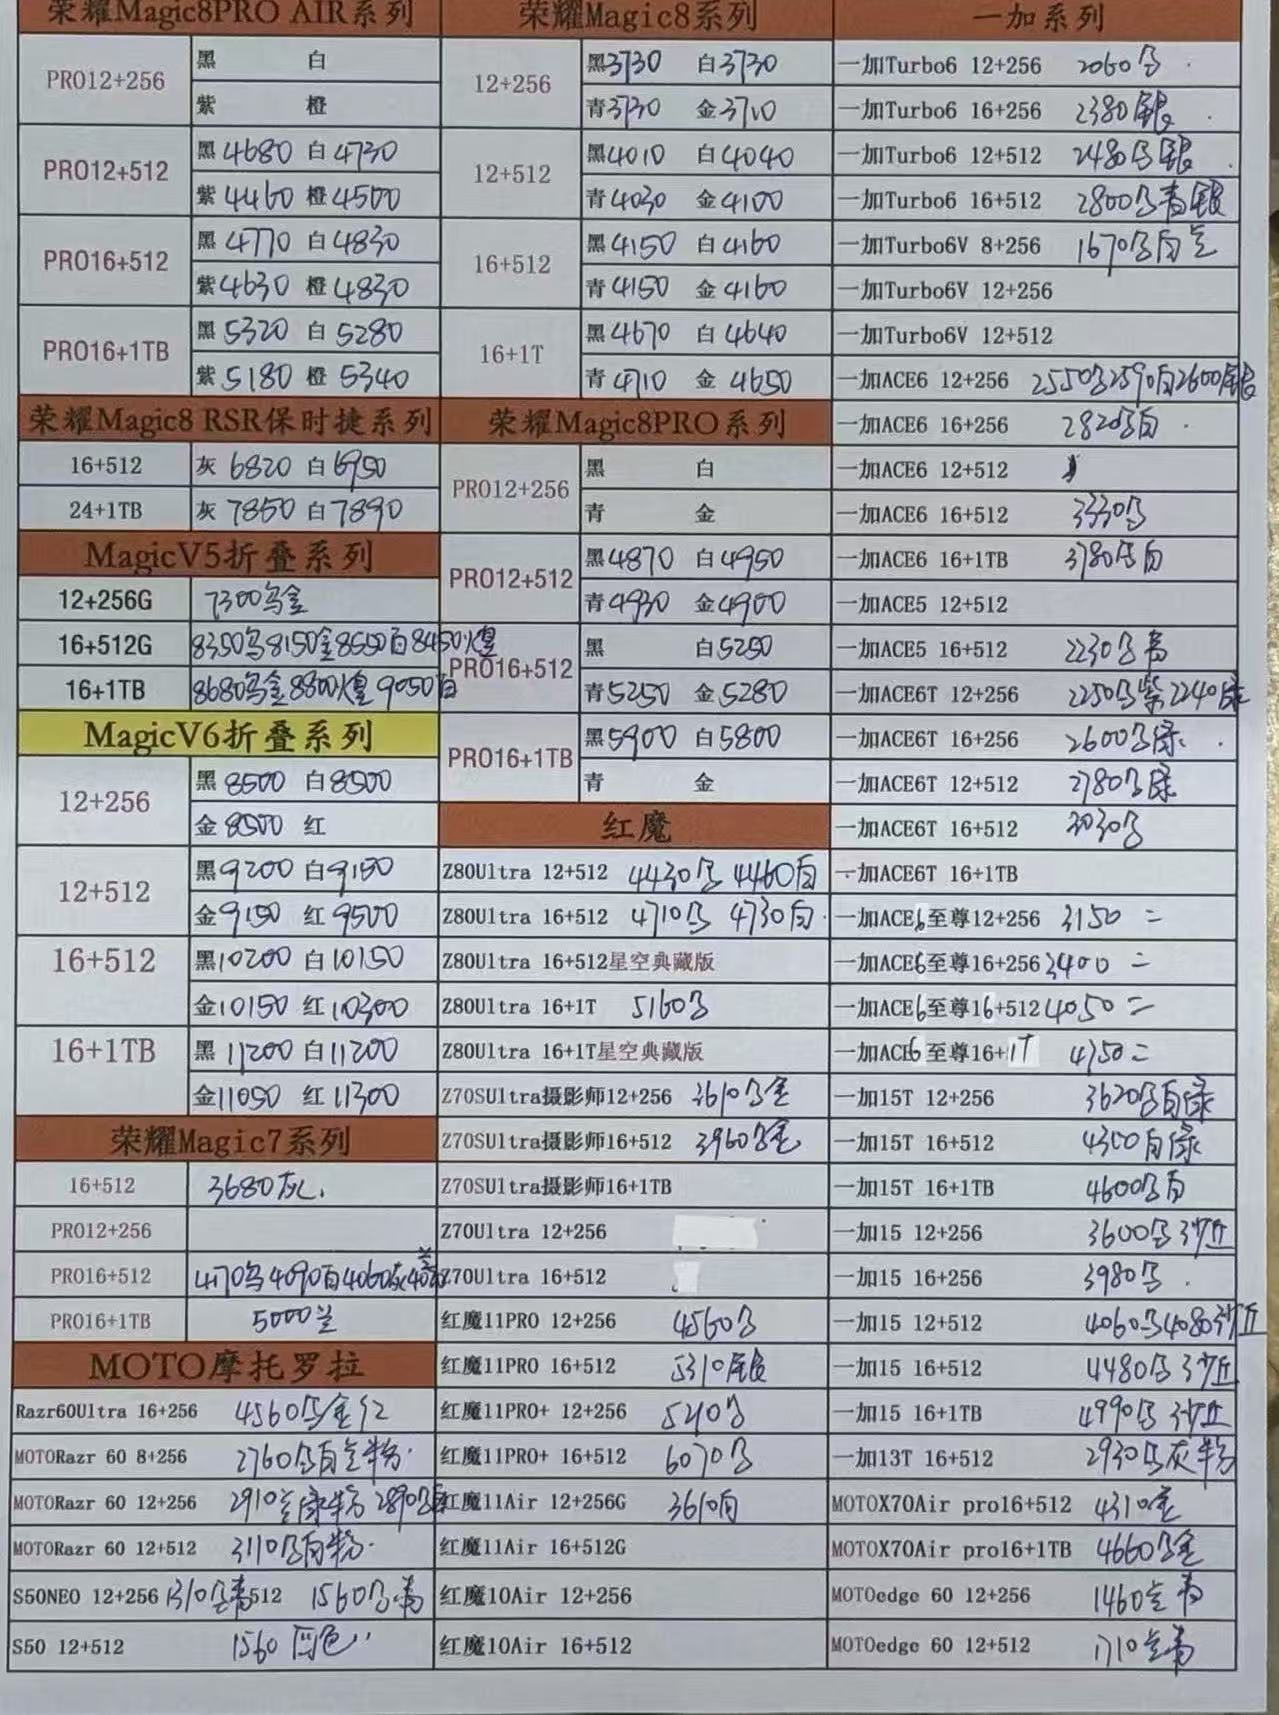 荣耀Magic8PRO AIR系列
PRO12+256
黑 白
紫 橙
PRO12+512
黑4680 白4730
紫4460 橙4500
PRO16+512
黑4770 白4830
紫4630 橙4830
PRO16+1TB
黑5320 白5280
紫5180 橙5340
荣耀Magic8 RSR保时捷系列
16+512 灰6820 白6950
24+1TB 灰7850 白7890
MagicV5折叠系列
12+256G 7300乌金
16+512G 8350乌8150金8550白8450
16+1TB 8680乌金8800 9050白
MagicV6折叠系列
12+256
黑8500 白8500
金8500 红
12+512
黑9200 白9150
金9150 红9500
16+512
黑10200 白10150
金10150 红10300
16+1TB
黑11200 白11200
金11050 红11300
荣耀Magic7系列
16+512 3680灰
PRO12+256
PRO16+512 4170乌4090白4060灰
PRO16+1TB 5000兰
MOTO摩托罗拉
Razr60Ultra 16+256 4560乌金红
MOTORazr 60 8+256 2760乌白兰粉
MOTORazr 60 12+256 2910兰绿粉 2890
MOTORazr 60 12+512 3110乌白粉
S50NEO 12+256 1310兰青512 1560乌青
S50 12+512 1560 四色
荣耀Magic8系列
12+256
黑3730 白3730
青3730 金3710
12+512
黑4010 白4040
青4030 金4100
16+512
黑4150 白4160
青4150 金4160
16+1T
黑4670 白4640
青4710 金4650
荣耀Magic8PRO系列
PRO12+256
黑 白
青 金
PRO12+512
黑4870 白4950
青4930 金4900
PRO16+512
黑 白5250
青5250 金5280
PRO16+1TB
黑5900 白5800
青 金
红魔
Z80Ultra 12+512 4430乌 4460白
Z80Ultra 16+512 4710乌 4730白
Z80Ultra 16+512星空典藏版
Z80Ultra 16+1T 5160乌
Z80Ultra 16+1T星空典藏版
Z70SUltra摄影师12+256 3610乌金
Z70SUltra摄影师16+512 3960乌金
Z70SUltra摄影师16+1TB
Z70Ultra 12+256
Z70Ultra 16+512
红魔11PRO 12+256 4560乌
红魔11PRO 16+512 5310银
红魔11PRO+ 12+256 5210乌
红魔11PRO+ 16+512 6070乌
红魔11Air 12+256G 3610白
红魔11Air 16+512G
红魔10Air 12+256
红魔10Air 16+512
一加系列
一加Turbo6 12+256 2060乌
一加Turbo6 16+256 2380银
一加Turbo6 12+512 2480乌银
一加Turbo6 16+512 2800乌青银
一加Turbo6V 8+256 1670乌白兰
一加Turbo6V 12+256
一加Turbo6V 12+512
一加ACE6 12+256 2550乌2590白2600银
一加ACE6 16+256 2820乌白
一加ACE6 12+512
一加ACE6 16+512 3330乌
一加ACE6 16+1TB 3780乌白
一加ACE5 12+512
一加ACE5 16+512 2230乌青
一加ACE6T 12+256 2250乌紫2240绿
一加ACE6T 16+256 2600乌绿
一加ACE6T 12+512 2780乌绿
一加ACE6T 16+512 3030乌
一加ACE6T 16+1TB
一加ACE6至尊12+256 3150 =
一加ACE6至尊16+256 3400 =
一加ACE6至尊16+512 4050 =
一加ACE6至尊16+1T 4750 =
一加15T 12+256 3620乌白绿
一加15T 16+512 4300白绿
一加15T 16+1TB 4600乌白
一加15 12+256 3600乌沙丘
一加15 16+256 3980乌
一加15 12+512 4060乌4080沙丘
一加15 16+512 4480乌沙丘
一加15 16+1TB 4990乌沙丘
一加13T 16+512 2930乌灰粉
MOTOX70Air pro16+512 4310金
MOTOX70Air pro16+1TB 4660乌金
MOTOedge 60 12+256 1460兰青
MOTOedge 60 12+512 1710兰青